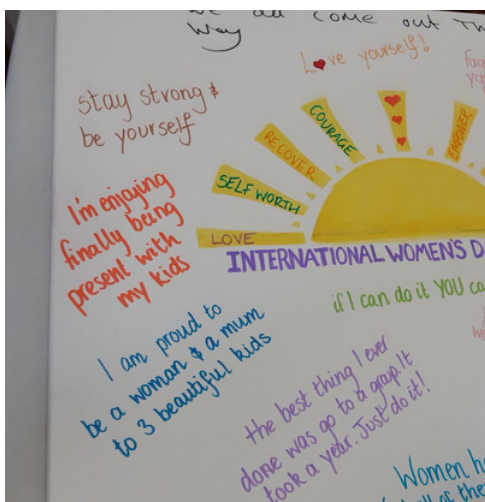 we all come out Th
way
Love yourself!
stay strong &
be yourself
COURAGE
RECOVER
EMPOWER
SELF WORTH
LOVE
INTERNATIONAL WOMEN'S D
I'm enjoying
finally being
present with
my kids
if I can do it YOU ca
I am proud to
be a woman & a mum
to 3 beautiful kids
the best thing I ever
done was go to a group. It
took a year. Just do it!
Women h